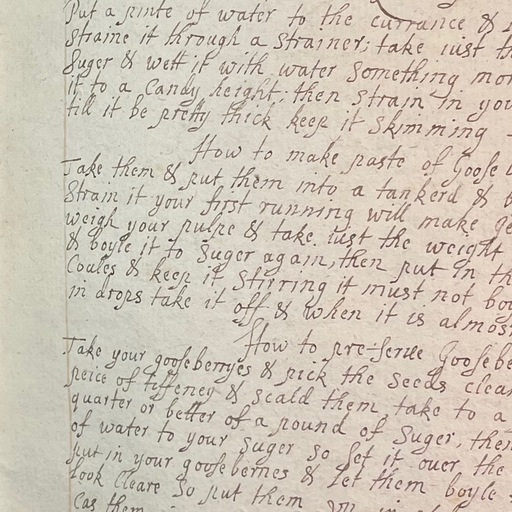 Put a pinte of water to the currance &
straine it through a strainer; take iust
suger & wett it with water something mor
it to a Candy height; then strain in you
till it be pretty thick keep it skimming
How to make paste of Goose
Take them & put them into a tankerd &
strain it your first running will make ge
weigh your pulpe & take iust the weight
& boyle it to suger again, then put in th
Coales & keep it, stirring it must not boy
in drops take it off & when it is almost
How to pre-serve Goosebe
Take your gooseberryes & pick the seeds clear
peice of tiffeney & scald them, take to a
quarter or better of a pound of Suger, then
of water to your suger so set it over the
put in your gooseberries & let them boyle
look Cleare so put them
Cas them